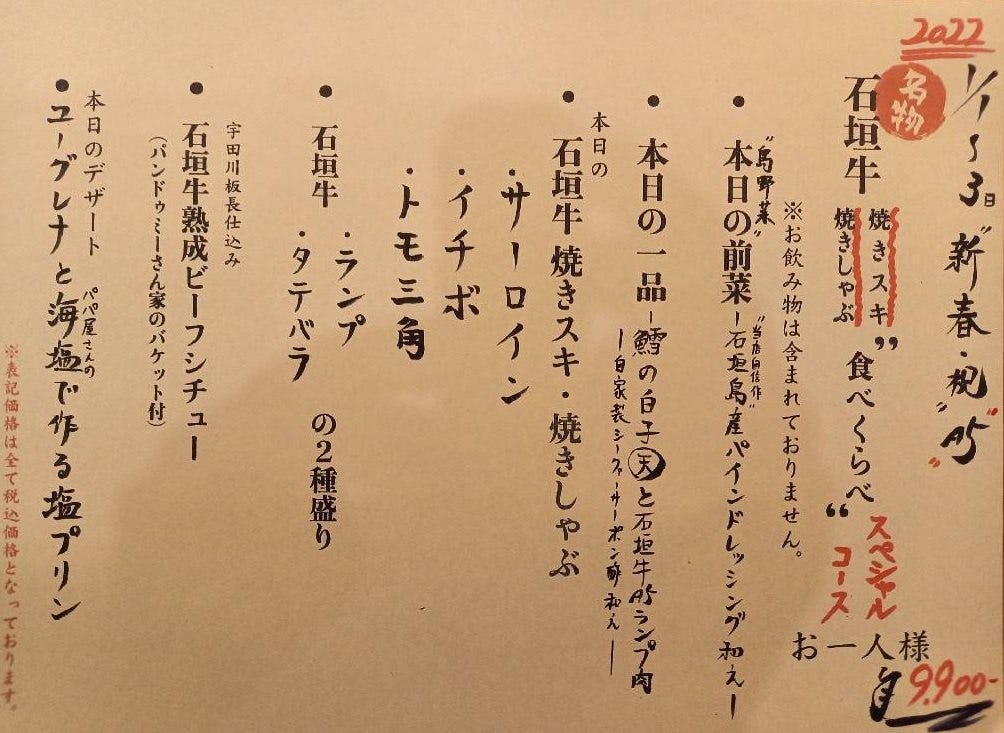 2022
1/1～3日 "新春・祝" "A5"
名物
石垣牛 焼きスキ 焼きしゃぶ "食べくらべ" スペシャルコース
お一人様
9.900-
※お飲み物は含まれておりません。
● "島野菜" 本日の前菜 ー"当店自信作" 石垣島産パインドレッシング和えー
● 本日の一品 ー鱈の白子天と石垣牛A5ランプ肉
ー自家製シークァーサーポン酢和えー
● 本日の 石垣牛 焼きスキ・焼きしゃぶ
・サーロイン
・イチボ
・トモ三角
● 石垣牛 ・ランプ ・タテバラ の2種盛り
宇田川板長仕込み
● 石垣牛熟成ビーフシチュー
(パンドゥミーさん家のバケット付)
本日のデザート
● ユーグレナとパパ屋さんの海塩で作る塩プリン
※表記価格は全て税込価格となっております。